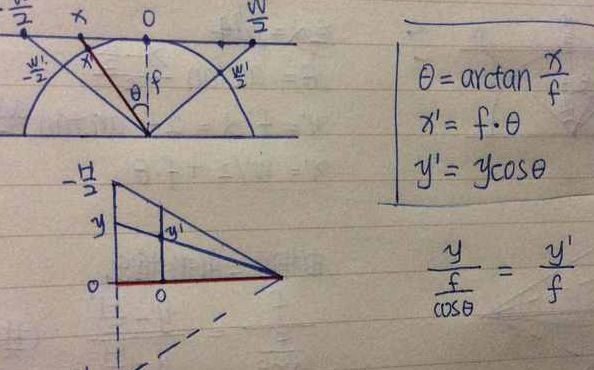 -W/2 x 0 W/2
-W'/2 x' θ f W'/2
-H/2
y y'
0 0
θ = arctan x/f
x' = f·θ
y' = ycosθ
y/(f/cosθ) = y'/f